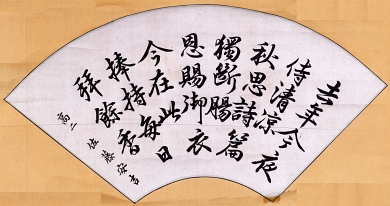 去年今夜
侍清涼
秋思詩篇
獨斷腸
恩賜御衣
今在此
捧持每日
拜餘香
高二 佐藤安吉